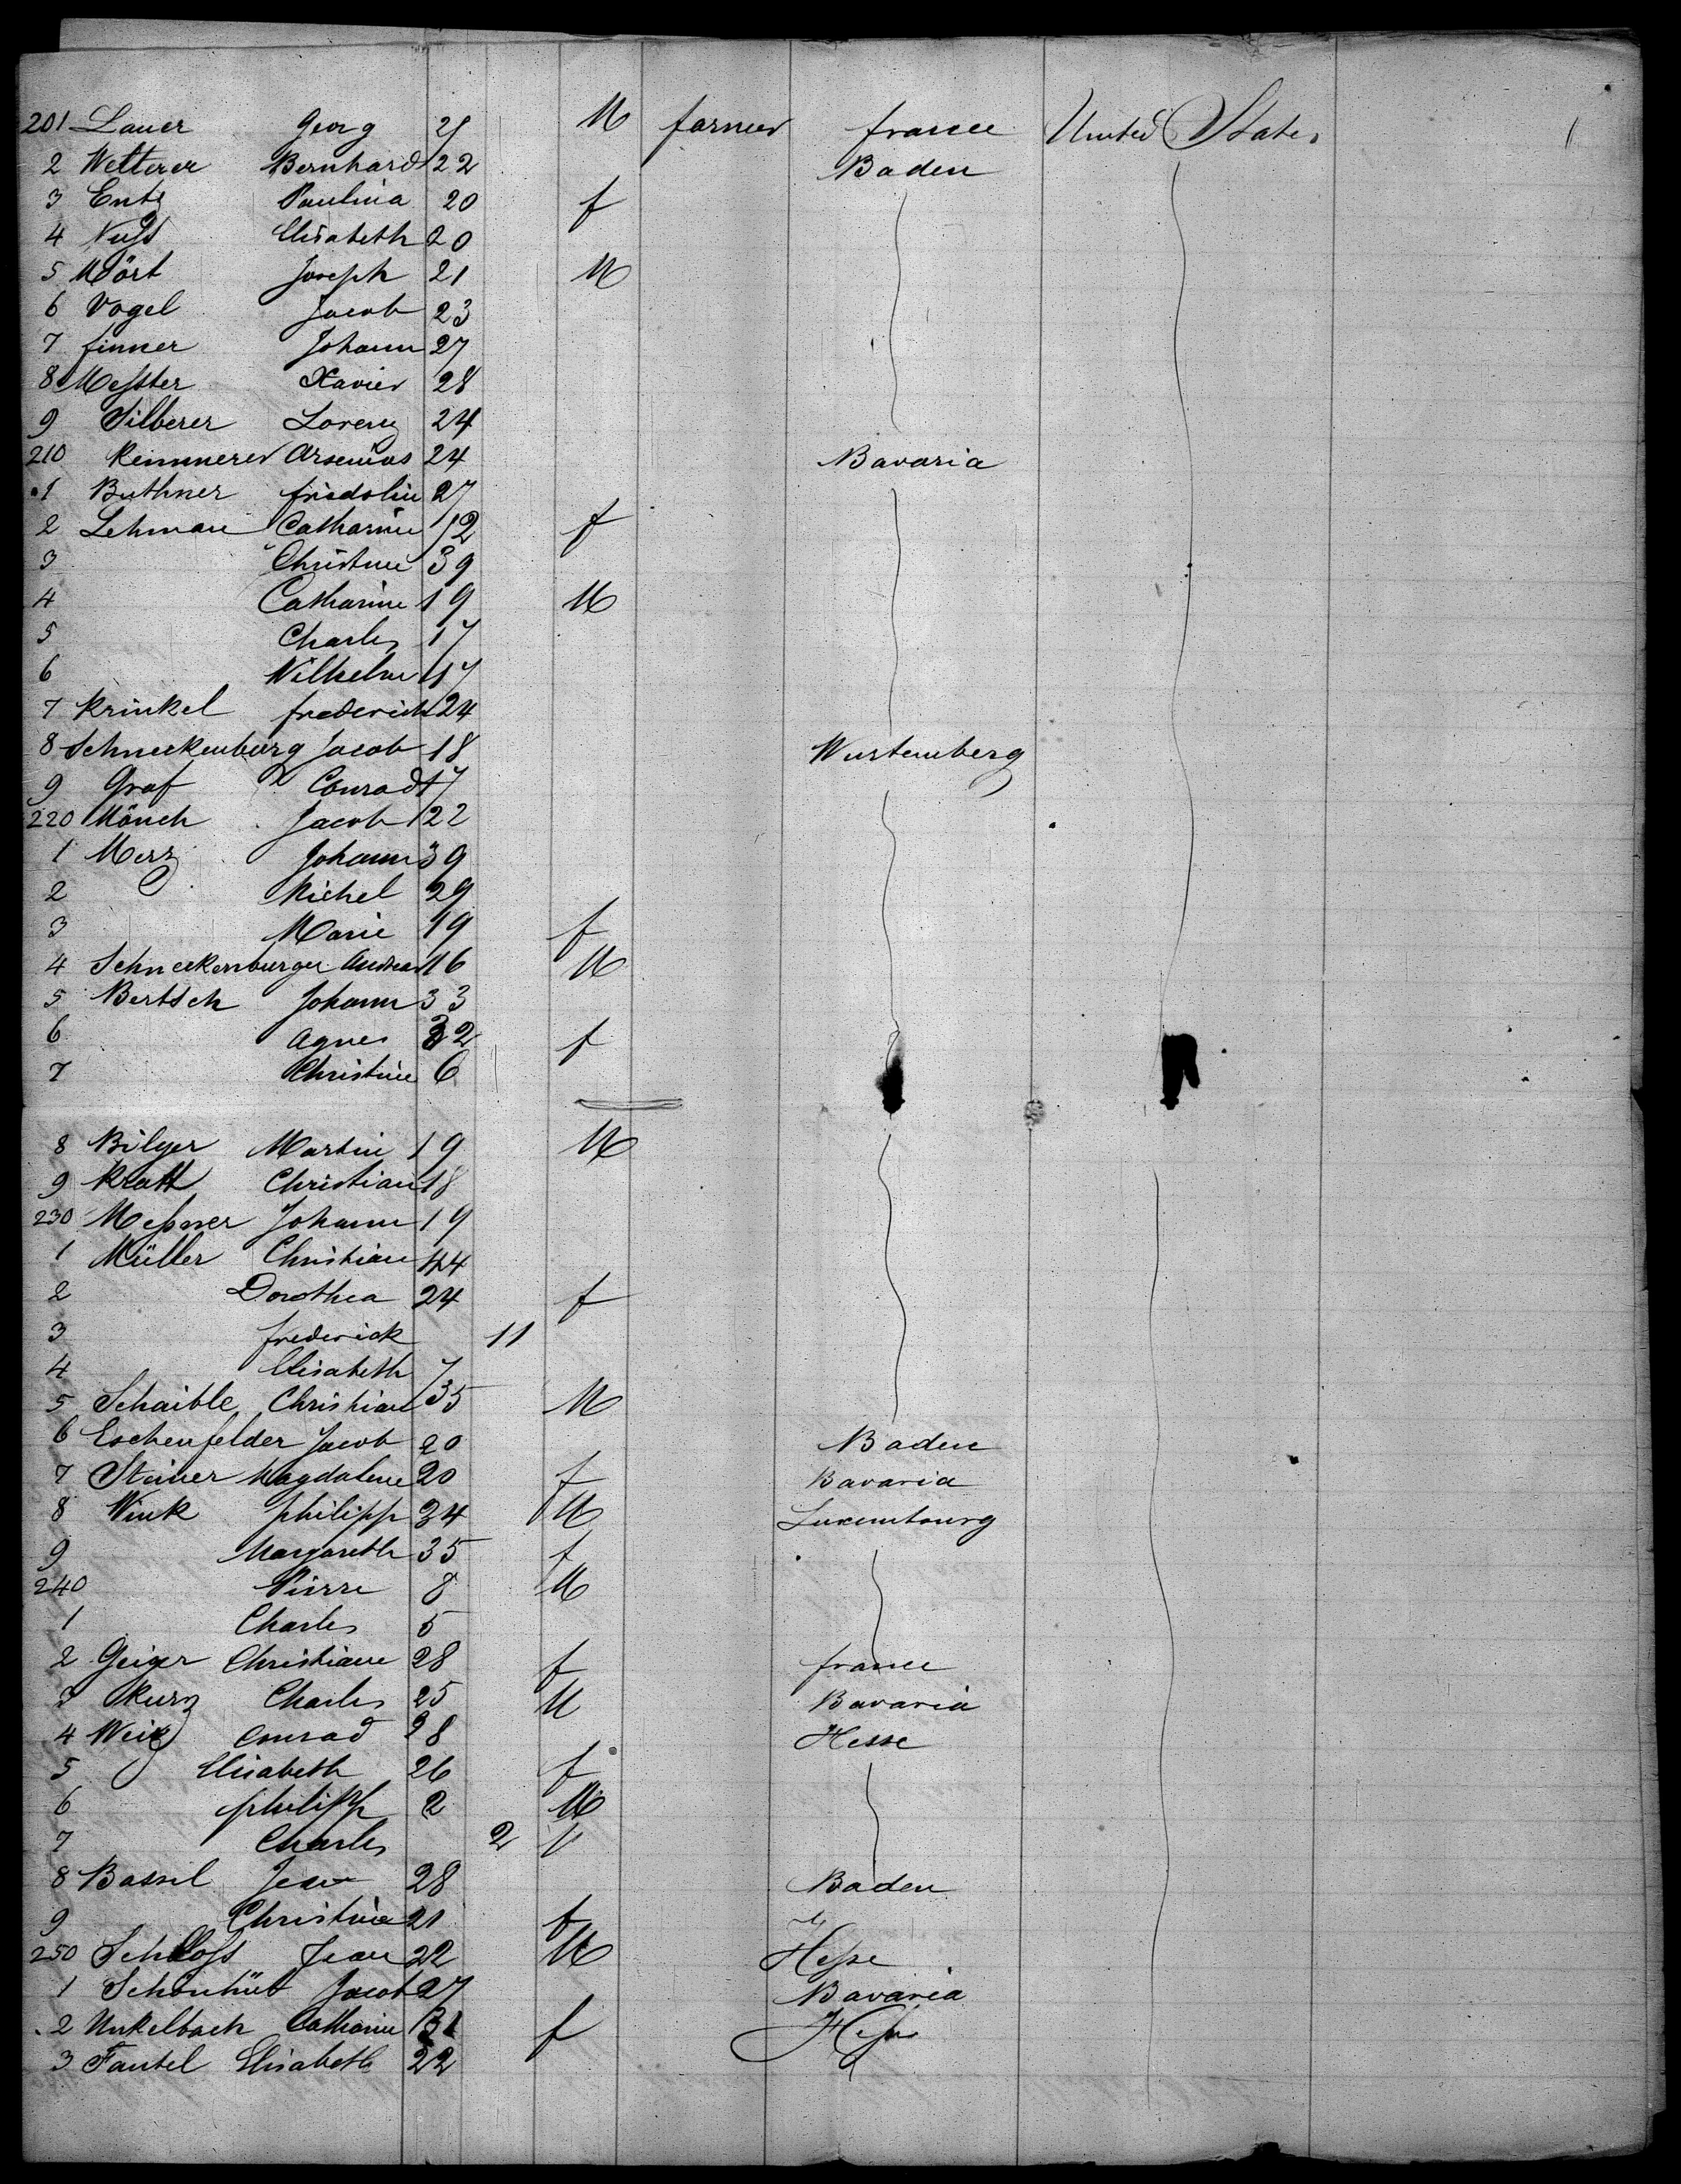 201 Lauer Georg 21 M farmer france United States
2 Wetterer Bernhard 22 Baden
3 Entz Paulina 20 f
4 Nuss Elisabeth 20
5 Mört Joseph 21 M
6 Vogel Jacob 23
7 finner Johann 27
8 Messter Xavier 28
9 Silberer Lorenz 24
210 Kemmerer Arsenius 24 Bavaria
1 Buthner fridolin 27
2 Lehman Catharine 12 f
3 " Christine 39
4 Catharine 19 M
5 Charles 17
6 Wilhelm 17
7 Krinkel frederick 24
8 Schneckenburg Jacob 18 Wurtemberg
9 Graf Conrad 17
220 Mönch Jacob 22
1 Merz Johann 39
2 Michel 29
3 Marie 19 f
4 Schneckenburger Andreas 16 M
5 Bertsch Johann 33
6 Agnes 32 f
7 Christine 6
8 Bilger Martin 19 M
9 Kratt Christian 18
230 Messner Johann 19
1 Müller Christian 44
2 Dorothea 24 f
3 frederick 11
4 Elisabeth 7
5 Schaible Christian 35 M
6 Eschenfelder Jacob 20 Baden
7 Steiner Magdalene 20 f Bavaria
8 Wink philipp 34 M Luxembourg
9 Margareth 35 f
240 Pierre 8 M
1 Charles 5
2 Geiger Christiane 28 f france
3 Kurz Charles 25 M Bavaria
4 Weitz Conrad 28 Hesse
5 Elisabeth 26 f
6 philipp 2 M
7 Charles 2
8 Bassel Jean 28 Baden
9 Christine 21 f
250 Schloss Jean 22 M Hesse
1 Schönhüt Jacob 27 Bavaria
2 Unkelbach Catharine 31 f Hesse
3 Fautel Elisabeth 22